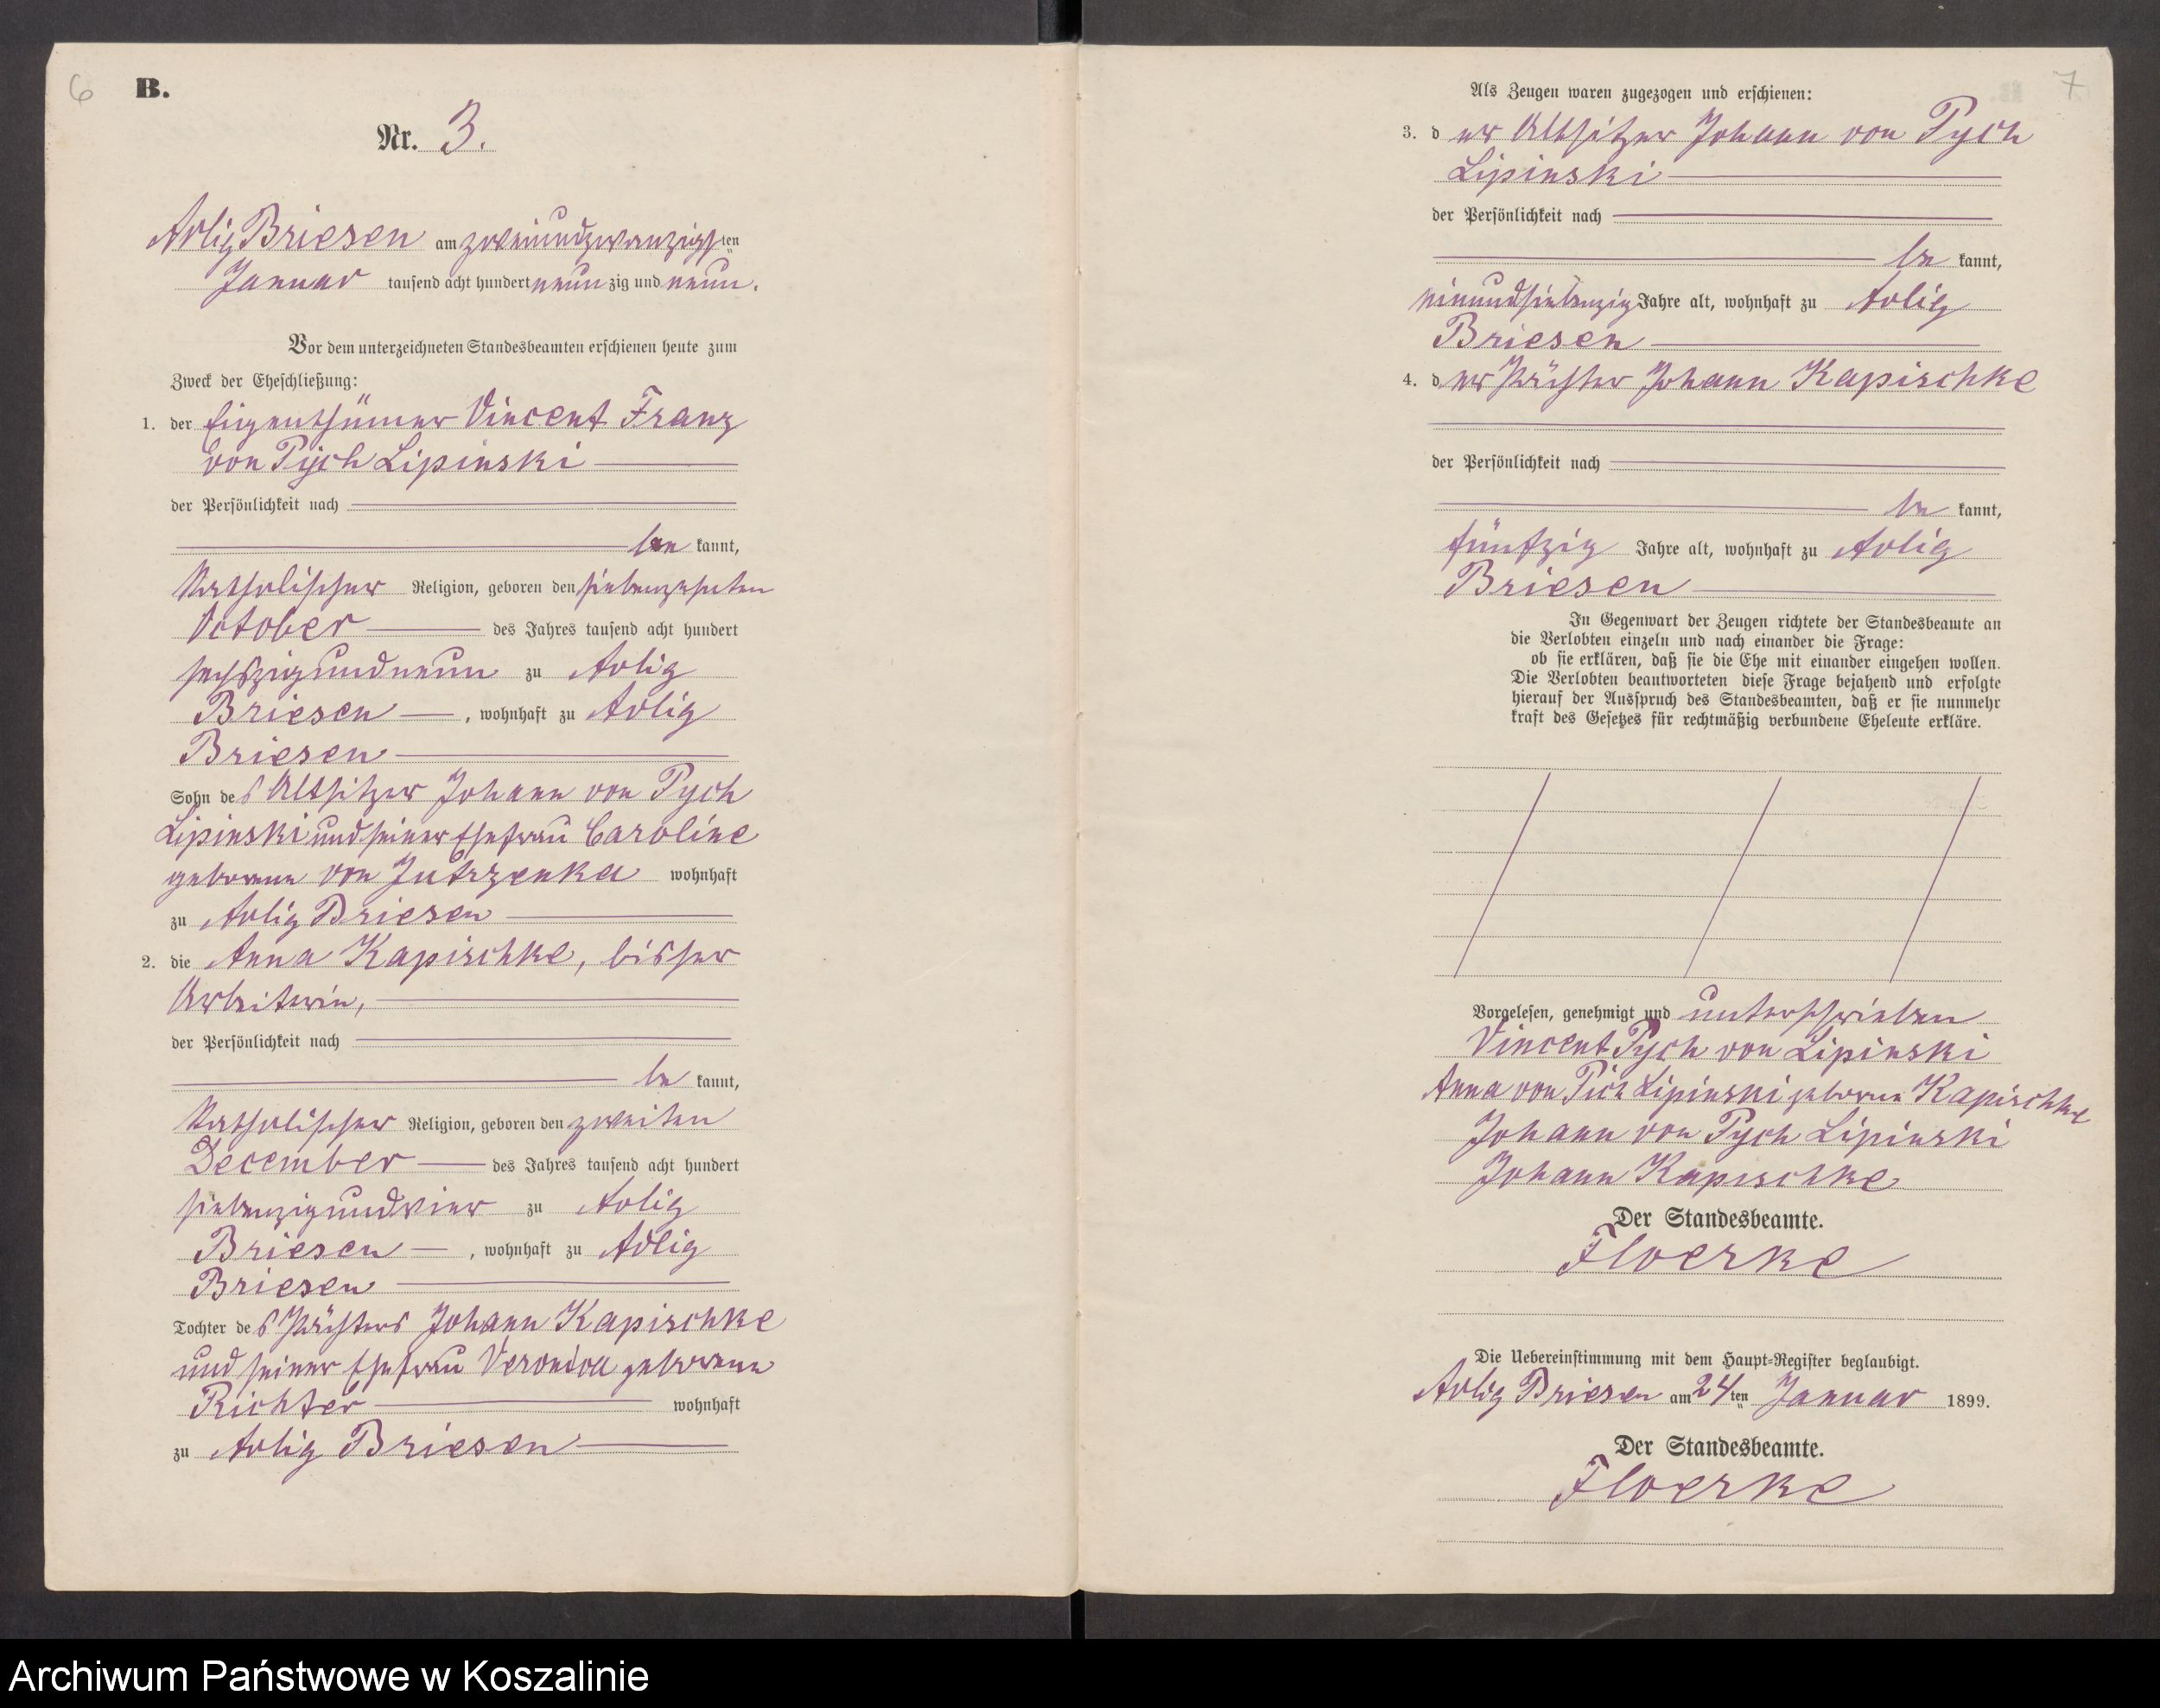 6
B.
Nr. 3.
Adlig Briesen am zweiundzwanzigsten
Januar tausend acht hundert neunzig und neun.
Vor dem unterzeichneten Standesbeamten erschienen heute zum
Zweck der Eheschließung:
1. der Eigenthümer Vincent Franz
von Pych Lipinski
der Persönlichkeit nach
be kannt,
katholischer Religion, geboren den siebenzehnten
October des Jahres tausend acht hundert
sechszig und neun zu Adlig
Briesen, wohnhaft zu Adlig
Briesen
Sohn des Altsitzer Johann von Pych
Lipinski und seiner Ehefrau Caroline
geborene von Jutrzenka wohnhaft
zu Adlig Briesen
2. die Anna Kapischke, bisher
Arbeiterin,
der Persönlichkeit nach
be kannt,
katholischer Religion, geboren den zweiten
December des Jahres tausend acht hundert
siebenzig und vier zu Adlig
Briesen, wohnhaft zu Adlig
Briesen
Tochter des Pächters Johann Kapischke
und seiner Ehefrau Veronica geborene
Richter wohnhaft
zu Adlig Briesen
7
Als Zeugen waren zugezogen und erschienen:
3. der Altsitzer Johann von Pych
Lipinski
der Persönlichkeit nach
be kannt,
einundsiebenzig Jahre alt, wohnhaft zu Adlig
Briesen
4. der Pächter Johann Kapischke
der Persönlichkeit nach
be kannt,
fünfzig Jahre alt, wohnhaft zu Adlig
Briesen
In Gegenwart der Zeugen richtete der Standesbeamte an
die Verlobten einzeln und nach einander die Frage:
ob sie erklären, daß sie die Ehe mit einander eingehen wollen.
Die Verlobten beantworteten diese Frage bejahend und erfolgte
hierauf der Ausspruch des Standesbeamten, daß er sie nunmehr
kraft des Gesetzes für rechtmäßig verbundene Eheleute erkläre.
Vorgelesen, genehmigt und unterschrieben
Vincent Pych von Lipinski
Anna von Pich Lipinski geborene Kapischke
Johann von Pych Lipinski
Johann Kapischke
Der Standesbeamte.
Floerke
Die Uebereinstimmung mit dem Haupt-Register beglaubigt.
Adlig Briesen am 24ten Januar 1899.
Der Standesbeamte.
Floerke
Archiwum Państwowe w Koszalinie